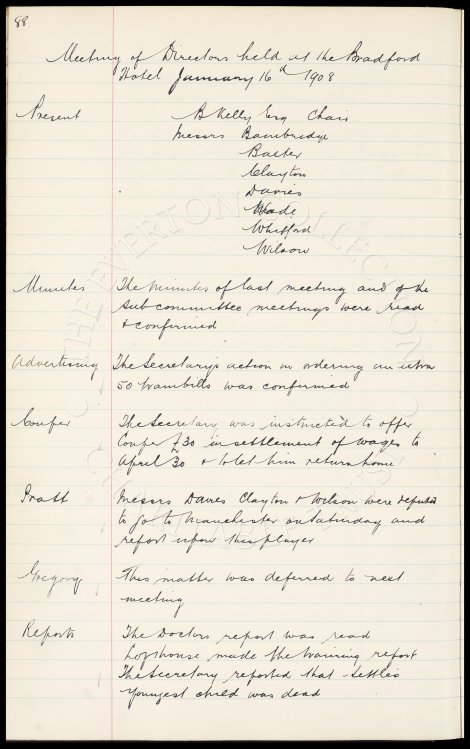 88
Meeting of Directors held at the Bradford
Hotel January 16th 1908
Present B Kelly Esq Chair
Messrs Bainbridge
Baxter
Clayton
Davies
Wade
Whitford
Wilson
Minutes The minutes of last meeting and of the
sub committee meetings were read
& confirmed
Advertising The Secretary's action in ordering an extra
50 trambills was confirmed
Couper The Secretary was instructed to offer
Couper £30 in settlement of wages to
April 30 & to let him return home
Pratt Messrs Davies Clayton & Wilson were deputed
to go to Manchester on Saturday and
report upon this player
Gregory This matter was deferred to next
meeting
Reports The Doctors report was read
Lofthouse made the training report
The Secretary reported that Settles
youngest child was dead
THE EVERTON COLLECTION